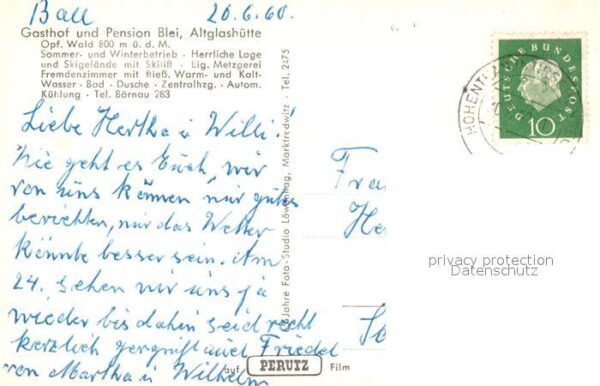 Ball 20.6.60.
Gasthof und Pension Blei, Altglashütte
Opf. Wald 800 m ü. d. M.
Sommer- und Winterbetrieb - Herrliche Lage
und Skigelände mit Skilift - Eig. Metzgerei
Fremdenzimmer mit fließ. Warm- und Kalt-
Wasser - Bad - Dusche - Zentralhzg. - Autom.
Kühlung - Tel. Bärnau 283
Liebe Hertha u. Willi!
Wie geht es Euch, wir
von uns können nur gutes
berichten, nur das Wetter
könnte besser sein. Am
24. sehen wir uns ja
wieder bis dahin seid recht
herzlich gegrüßt auch Friedel
von Martha u. Wilhelm
Jahre Foto-Studio Löwenhag, Marktredwitz - Tel. 2475
auf PERUTZ Film
Frau
He
DEUTSCHE BUNDESPOST
10
HOHENT
privacy protection
Datenschutz